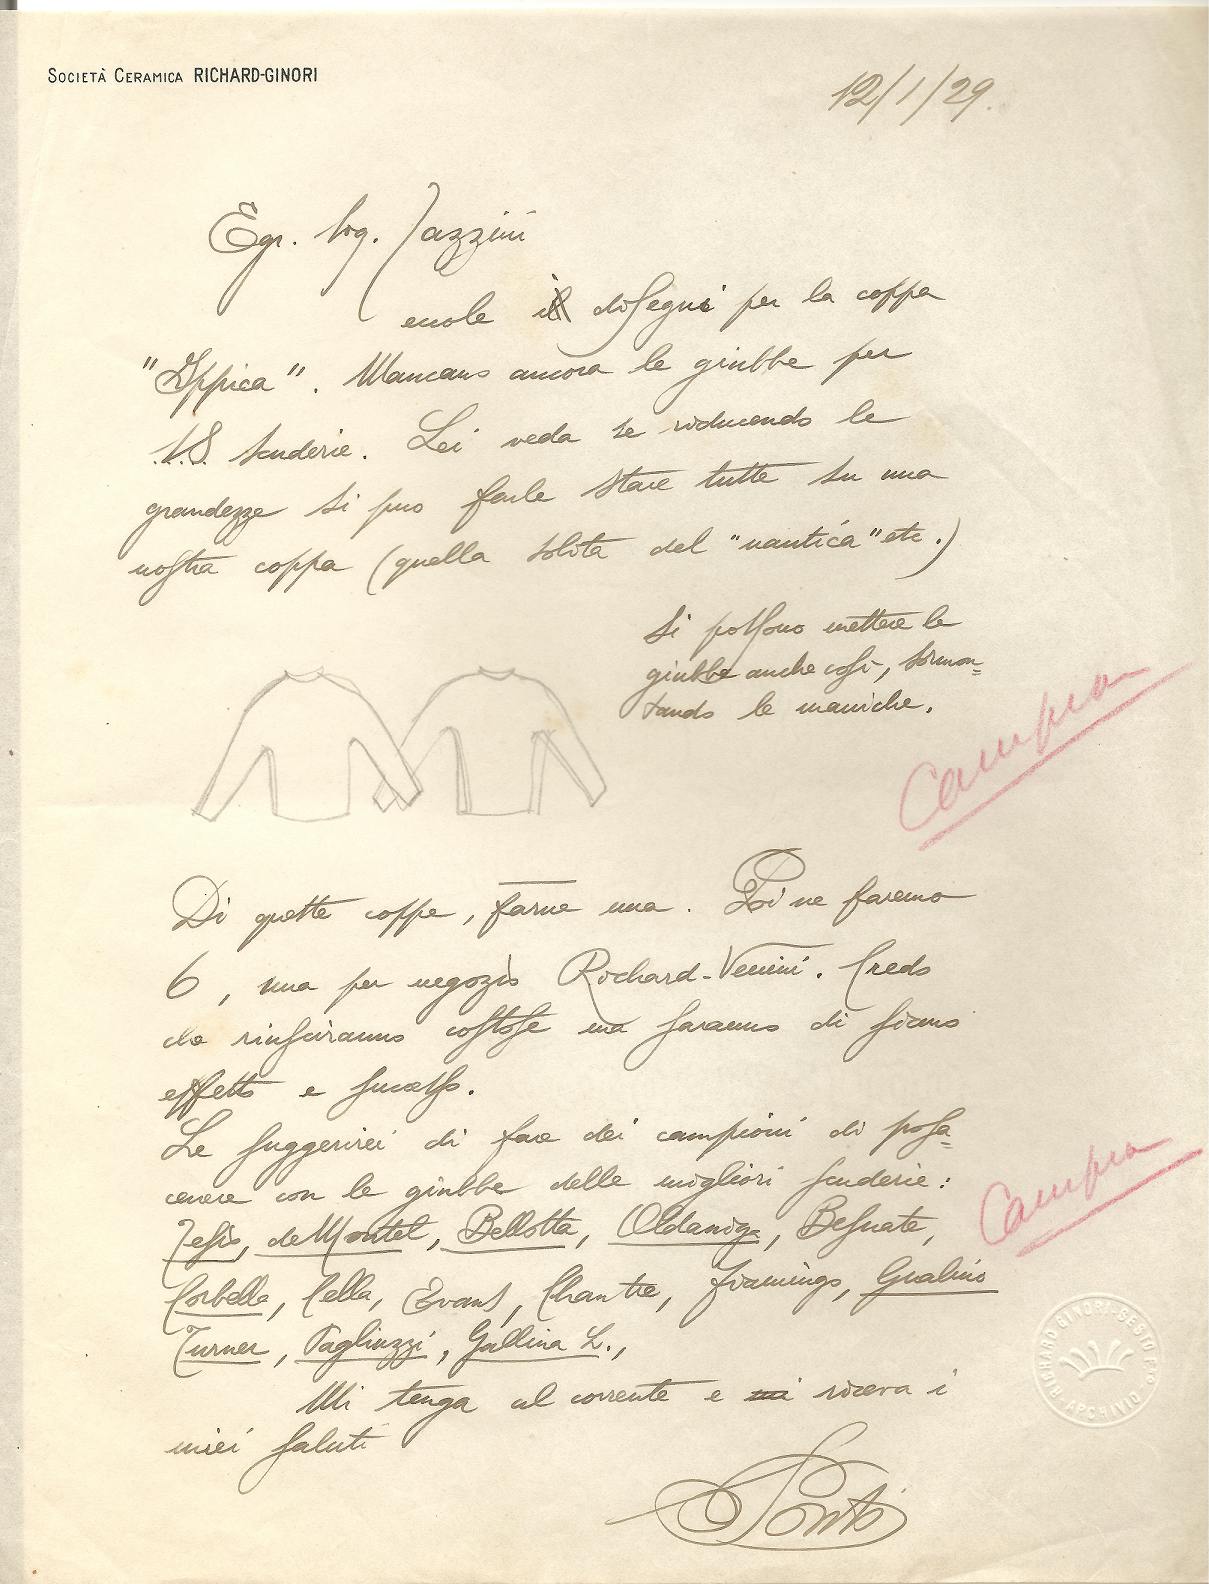 SOCIETÀ CERAMICA RICHARD-GINORI
12/1/29.
Egr. Sig. Tazzini
eccole i disegni per la coppa
"Ippica". Mancano ancora le giubbe per
N.S. scuderie. Lei veda se riducendo le
grandezze si può farle stare tutte su una
nostra coppa (quella solita del "nautica" etc.)
Si possono mettere le
giubbe anche così, sormon=
tando le maniche.
Campra
Di queste coppe, farne una. Poi ne faremo
6, una per negozio Richard-Venini. Credo
che riusciranno costose ma saranno di sicuro
effetto e successo.
Le suggerirei di fare dei campioni di posa=
cenere con le giubbe delle migliori scuderie:
Campra
Tesio, de Montel, Bellotta, Oldaniga, Besnate,
Corbella, Cella, Evans, Chantre, Fiamingo, Gualino
Turner, Pagliuzzi, Gallina L.,
Mi tenga al corrente e riceva i
miei saluti
Ponti
RICHARD GINORI-SESTO F.NO
ARCHIVIO